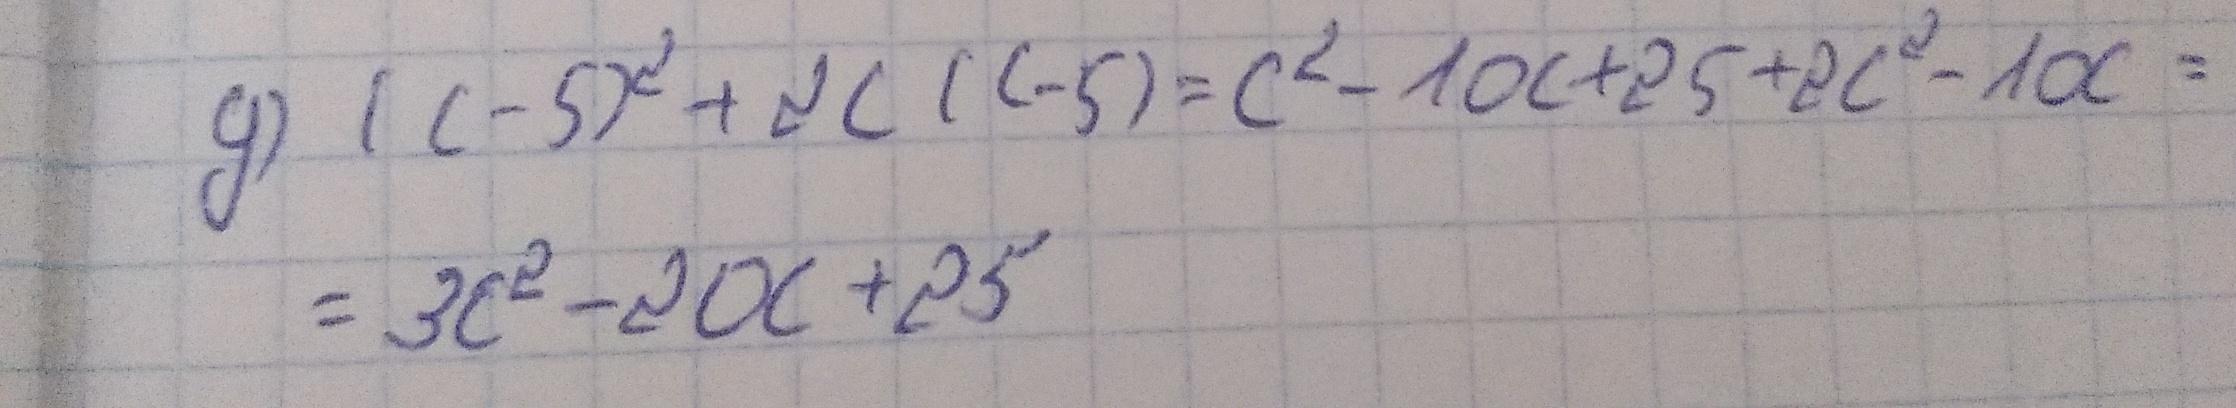 д) (c-5)² + 2c (c-5) = c² - 10c + 25 + 2c² - 10c =
= 3c² - 20c + 25